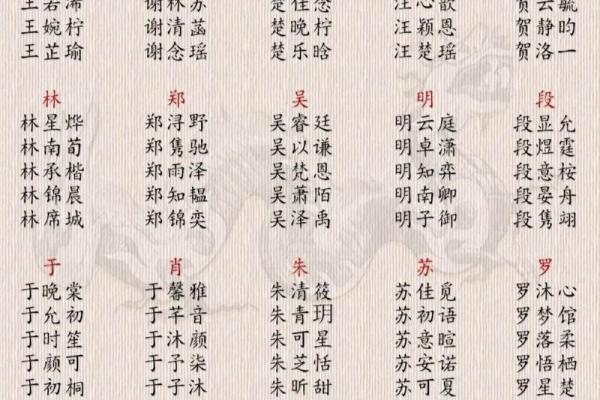 王婉柠 谢清菡 楚晚柠 汪颖恩 贺静昀
王芷瑜 谢念瑶 楚乐晗 汪楚瑶 贺洛一
林 郑 吴 明 段
林星烨 郑浔野 吴睿廷 明云庭 段显允
林南荀 郑隽驰 吴以谦 明卓潇 段煜霆
林承楷 郑雨泽 吴梵恩 明知弈 段意桉
林锦晨 郑知韫 吴萧陌 明南卿 段晏舟
林席城 郑锦奕 吴泽禹 明子御 段隽翊
于 肖 朱 苏 罗
于晚棠 于馨雅 朱清筱 苏佳觅 罗沐心
于允初 于芊音 朱青玥 苏初语 罗梦馆
于时笙 于沐颜 朱可星 苏意暄 罗落柔
于颜可 于予柒 朱芝恬 苏安诺 罗悟栖
于初桐 于子沐 朱昕甜 苏可夏 罗星楚